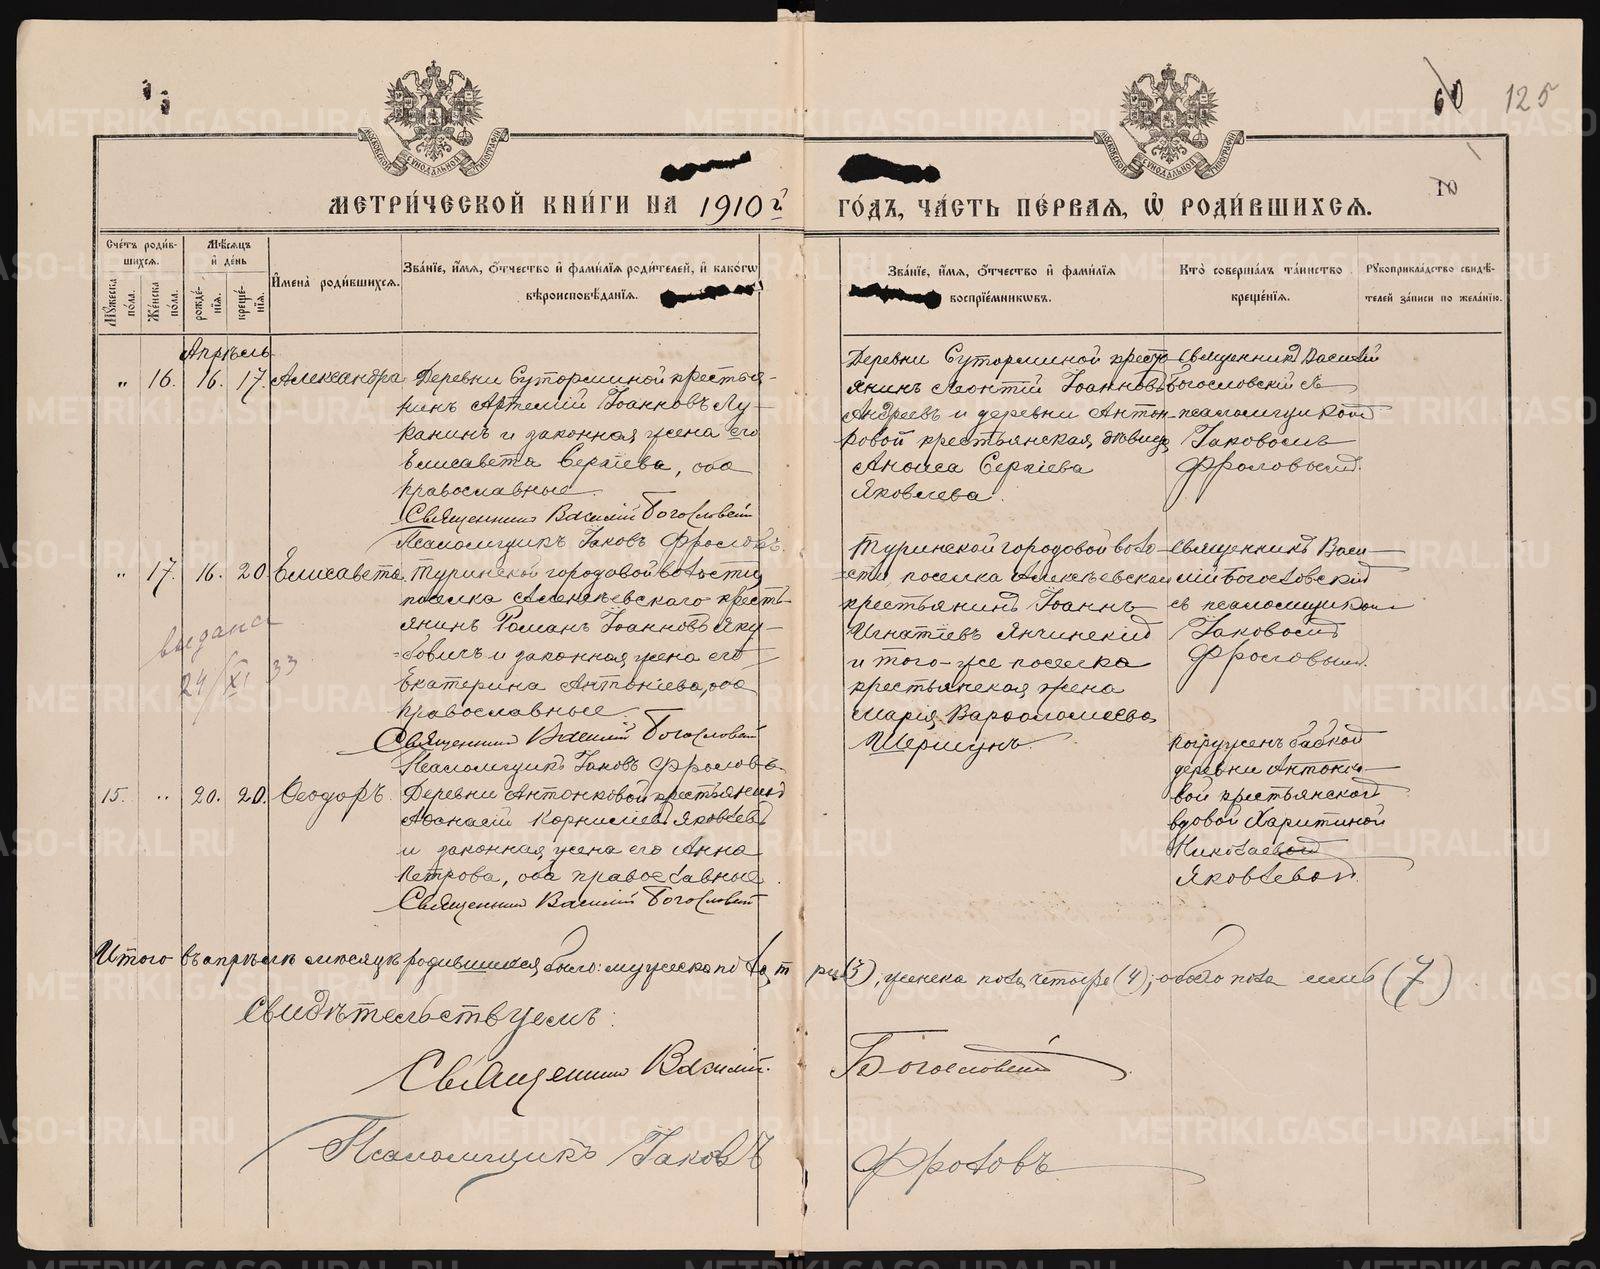 60 125
МОСКОВСКОЙ СѴНОДАЛЬНОЙ ТИПОГРАФІИ
МОСКОВСКОЙ СѴНОДАЛЬНОЙ ТИПОГРАФІИ
10
МЕТРИ́ЧЕСКОЙ КНИ́ГИ НА 1910 й ГО́ДЪ, ЧА́СТЬ ПЕ́РВАЯ, Ѡ҆ РОДИ́ВШИХСЯ.
Сче́тъ роди́в-
шихся.
Мꙋ́жеска по́ла.
Же́нска по́ла.
Мѣ́сяцъ
и҆ де́нь
рожде́-
нїя.
креще́-
нїя.
И҆мена̀ роди́вшихся.
Зва́нїе, и҆́мя, ѻ҆́тчество и҆ фами́лїя роди́телей, и҆ како́гѡ
вѣроисповѣ́данїя.
Зва́нїе, и҆́мя, ѻ҆́тчество и҆ фами́лїя
воспрїе́мникѡвъ.
Кто̀ соверша́лъ та́инство
креще́нїя.
Рꙋкоприкла́дство свидѣ́-
телей за́писи по жела́нїю.
Апрѣль
„ 16. 16. 17. Александра
Деревни Суторминой крестья-
нинъ Артемій Іоанновъ Лу-
канинъ и законная жена его
Елисавета Сергіева, оба
православные.
Священникъ Василій Богословскій
Псаломщикъ Іаковъ Фроловъ.
Деревни Суторминой кресть-
янинъ Леонтій Іоанновъ
Андреевъ и деревни Антон-
ковой крестьянская дѣвица
Анисса Сергіева
Яковлева.
Священникъ Василій
Богословскій съ
псаломщикомъ
Іаковомъ
Фроловымъ.
„ 17. 16. 20. Елисавета
Туринской городовой волости,
поселка Алексѣевскаго кресть-
янинъ Романъ Іоанновъ Яку-
бовичъ и законная жена его
Екатерина Антоніева, оба
православные.
Священникъ Василій Богословскій
Псаломщикъ Іаковъ Фроловъ
выдана
24/XI 33
Туринской городовой воло-
сти, поселка Алексѣевскаго
крестьянинъ Іоаннъ
Игнатіевъ Янчинскій
и того-же поселка
крестьянская жена
Марія Варѳоломеева
Шершунъ.
Священникъ Васи-
лій Богословскій
съ псаломщикомъ
Іаковомъ
Фроловымъ.
15. „ 20. 20. Ѳеодоръ.
Деревни Антонковой крестьянинъ
Аѳанасій Корниліевъ Яковлевъ
и законная жена его Анна
Петрова, оба православные.
Священникъ Василій Богословскій
Погруженъ бабкой
деревни Антонко-
вой крестьянской
вдовой Харитиной
Николаевой
Яковлевой.
Итого въ апрѣлѣ мѣсяцѣ родившихся было: мужеска пола три (3), женска пола четыре (4); обоего пола семь (7)
Свидѣтельствуемъ:
Священникъ Василій Богословскій
Псаломщикъ Іаковъ Фроловъ
METRIKI.GASO-URAL.RU